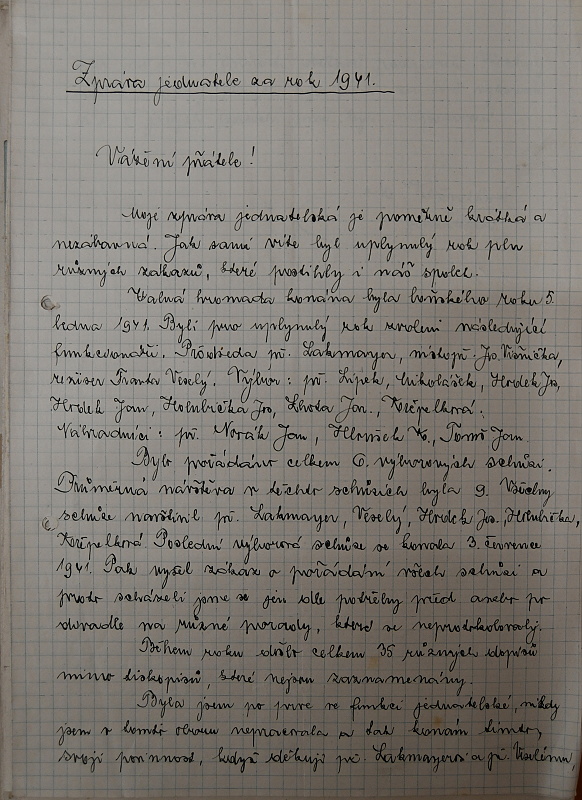 Zpráva jednatele za rok 1941.
Vážení přátelé!
Moje zpráva jednatelská je poměrně krátká a
nezábavná. Jak sami víte byl uplynulý rok pln
různých zákazů, které postihly i náš spolek.
Valná hromada konána byla loňského roku 5.
ledna 1941. Byli pro uplynulý rok zvoleni následující
funkcionáři. Předseda př. Lakmayer, místopř. Jos. Višnička,
režiser Franta Veselý. Výbor: př. Lípek, Mikolášek, Hrdek Jos,
Hrdek Jan, Holubička Jos, Lhota Jan., Křepelková.
Náhradníci: př. Novák Jan, Tomš Jan.
Bylo pořádáno celkem 6. výborových schůzí.
Průměrná návštěva v těchto schůzích byla 9. Všechny
schůze navštívil př. Lakmayer, Veselý, Hrdek Jos, Holubička,
Křepelková. Poslední výborová schůze se konala 3. července
1941. Pak vyšel zákaz o pořádání všech schůzí a
proto scházeli jsme se jen dle potřeby před anebo po
divadle na různé porady, které se neprotokolovaly.
Během roku došlo celkem 35 různých dopisů
mimo tiskopisů, které nejsou zaznamenány.
Byla jsem po prve ve funkci jednatelské, nikdy
jsem v tomto oboru nepracovala a tak konám tímto
svoji povinnost, když děkuji př. Lakmayerovi a př. Veselému,